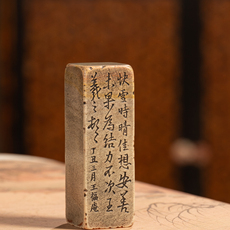 快雪時晴佳想安善
未果為結力不次王
羲之頓
丁丑三月王福庵